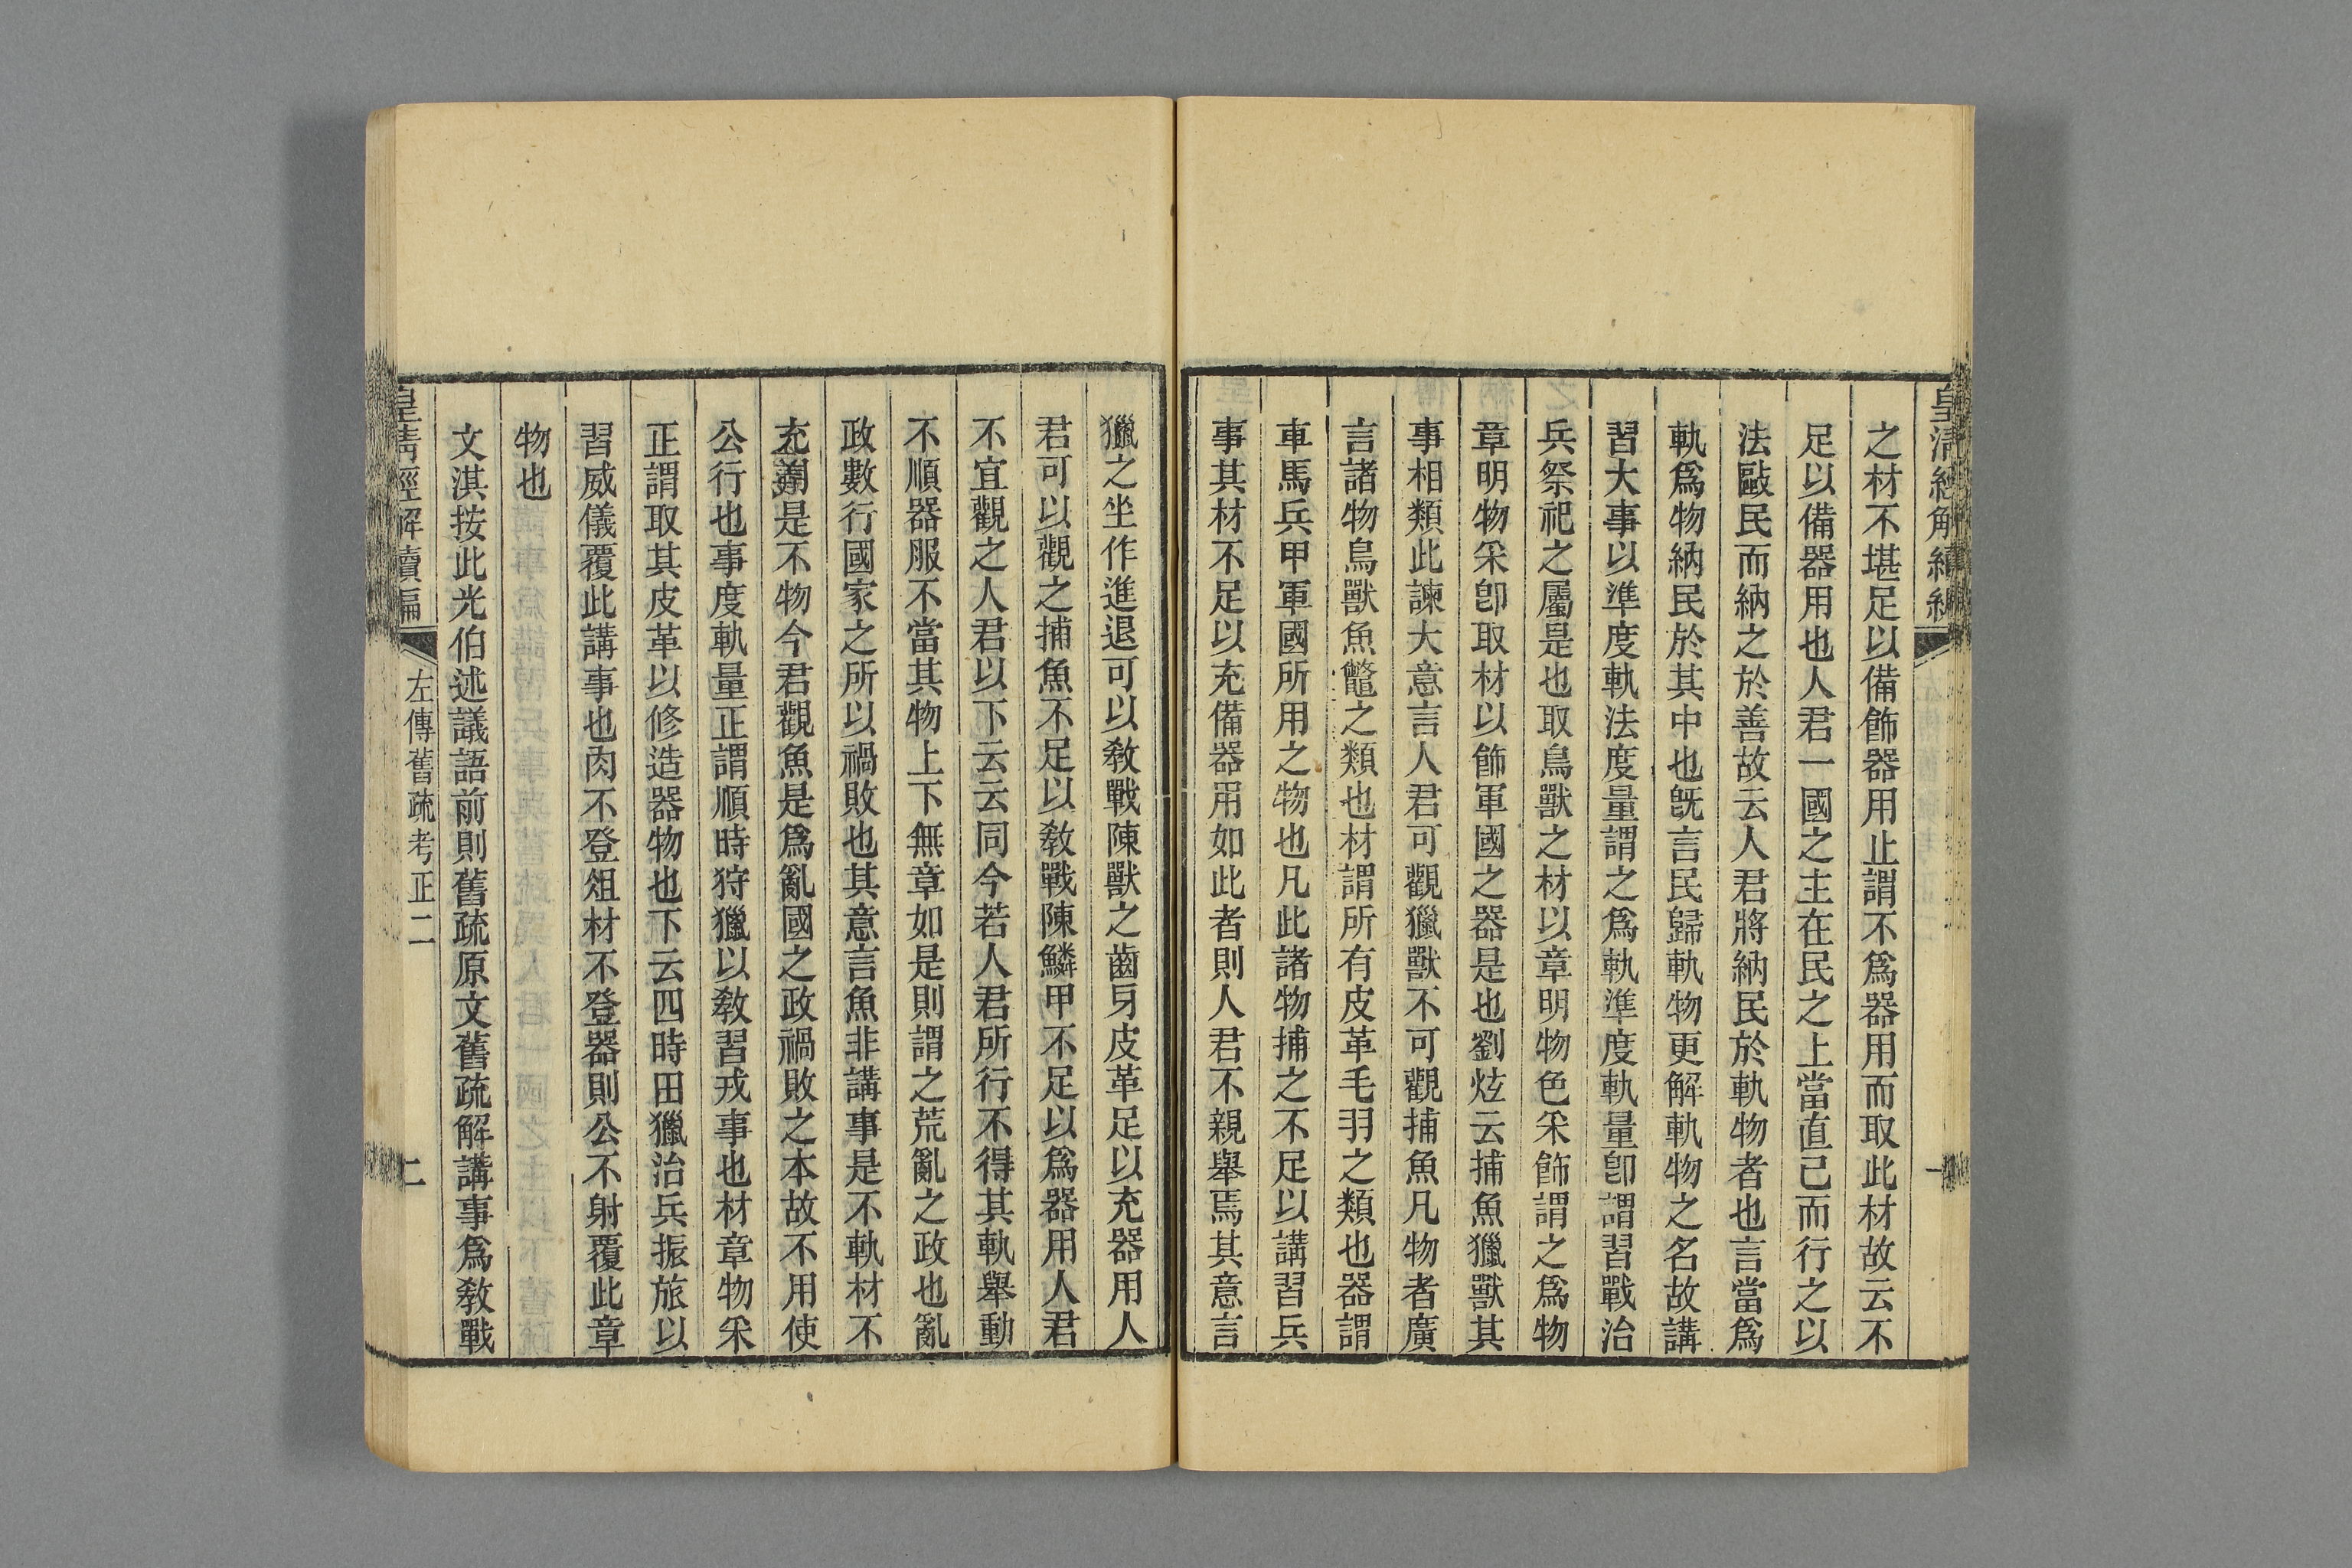 皇清經解續編
一
之材不堪足以備飾器用止謂不爲器用而取此材故云不
足以備器用也人君一國之主在民之上當直己而行之以
法歐民而納之於善故云人君將納民於軌物者也言當爲
軌爲物納民於其中也旣言民歸軌物更解軌物之名故講
習大事以準度軌法度量謂之爲軌準度軌量卽謂習戰治
兵祭祀之屬是也取鳥獸之材以章明物色采飾謂之爲物
章明物采卽取材以飾軍國之器是也劉炫云捕魚獵獸其
事相類此諫大意言人君可觀獵獸不可觀捕魚凡物者廣
言諸物鳥獸魚鼈之類也材謂所有皮革毛羽之類也器謂
車馬兵甲軍國所用之物也凡此諸物捕之不足以講習兵
事其材不足以充備器用如此者則人君不親舉焉其意言
獵之坐作進退可以敎戰陳獸之齒牙皮革足以充器用人
君可以觀之捕魚不足以敎戰陳鱗甲不足以爲器用人君
不宜觀之人君以下云云同今若人君所行不得其軌舉動
不順器服不當其物上下無章如是則謂之荒亂之政也亂
政數行國家之所以禍敗也其意言魚非講事是不軌材不
充用是不物今君觀魚是爲亂國之政禍敗之本故不用使
公行也事度軌量正謂順時狩獵以敎習戎事也材章物采
正謂取其皮革以修造器物也下云四時田獵治兵振旅以
習威儀覆此講事也肉不登俎材不登器則公不射覆此章
物也
文淇按此光伯述議語前則舊疏原文舊疏解講事爲敎戰
皇清經解續編
左傳舊疏考正二
二